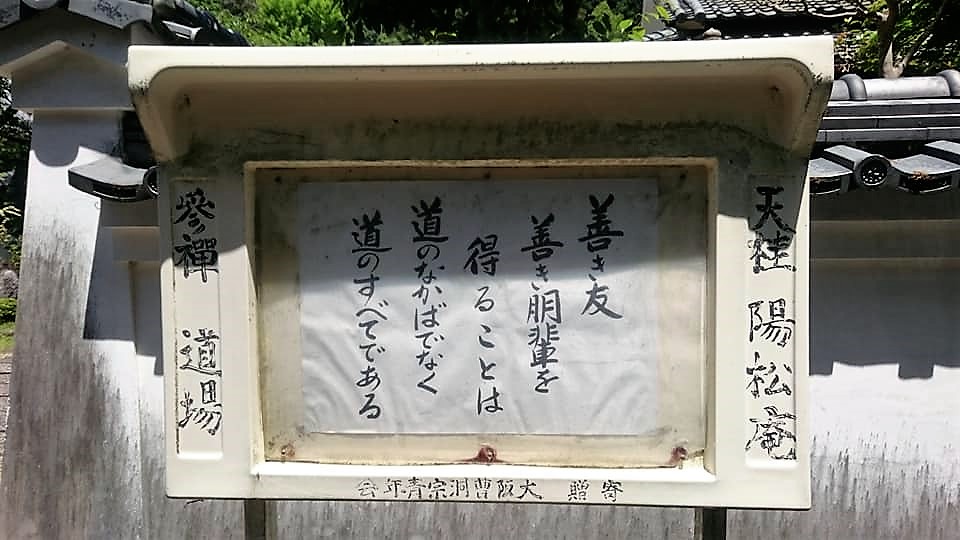 天桂 陽松庵
善き友
善き朋輩を
得ることは
道のなかばでなく
道のすべてである
參禪 道場
寄贈 大阪曹洞宗青年会